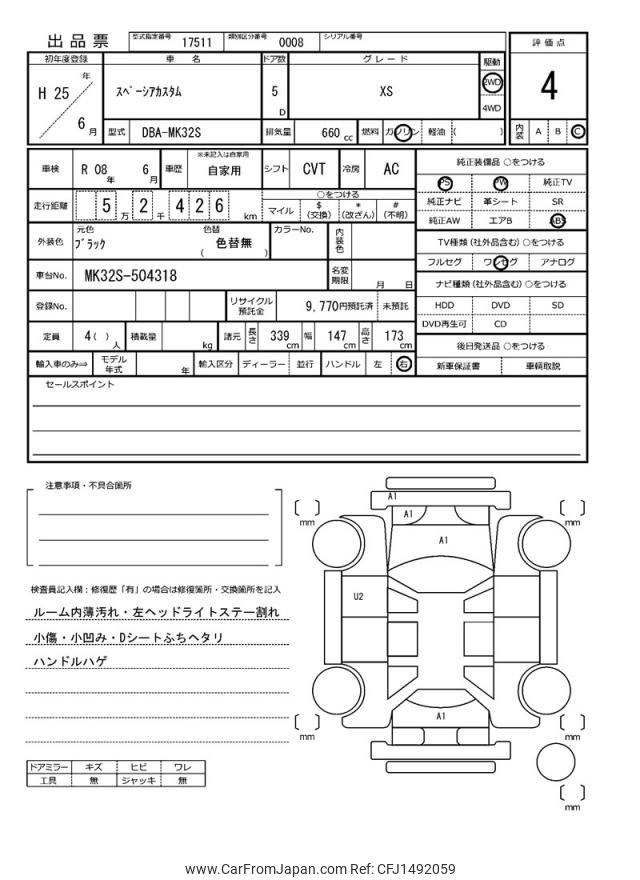 出品票
型式指定番号 17511 類別区分番号 0008 シリアル番号
初年度登録 車名 ドア数 グレード 駆動
H 25 年 6 月
スペーシアカスタム 5 D XS 2WD 4WD
型式 DBA-MK32S 排気量 660 cc 燃料 ガソリン 軽油 ( )
評価点
4
内装 A B C
車検 R 08 年 6 月 車歴 ※未記入は自家用 自家用 シフト CVT 冷房 AC
走行距離 5 万 2 千 4 2 6 km
○をつける
マイル $(交換) *(改ざん) #(不明)
外装色 元色 ブラック 色替 ( 色替無 ) カラーNo. 内装色
車台No. MK32S-504318 名変期限 月 日
登録No. リサイクル預託金 9,770円預託済 未預託
定員 4( )人 積載量 kg 諸元 長さ 339 cm 幅 147 cm 高さ 173 cm
輸入車のみ⇒ モデル年式 年 輸入区分 ディーラー 並行 ハンドル 左 右
純正装備品 ○をつける
PS PW 純正TV
純正ナビ 革シート SR
純正AW エアB ABS
TV種類(社外品含む)○をつける
フルセグ ワンセグ アナログ
ナビ種類(社外品含む)○をつける
HDD DVD SD
DVD再生可 CD
後日発送品 ○をつける
新車保証書 車輌取説
セールスポイント
注意事項・不具合箇所
検査員記入欄:修復歴「有」の場合は修復箇所・交換箇所を記入
ルーム内薄汚れ・左ヘッドライトステー割れ
小傷・小凹み・Dシートふちヘタリ
ハンドルハゲ
ドアミラー キズ ヒビ ワレ
工具 無 ジャッキ 無
A1
A1
A1
U2
A1
mm
mm
mm
mm
mm
www.CarFromJapan.com Ref: CFJ1492059